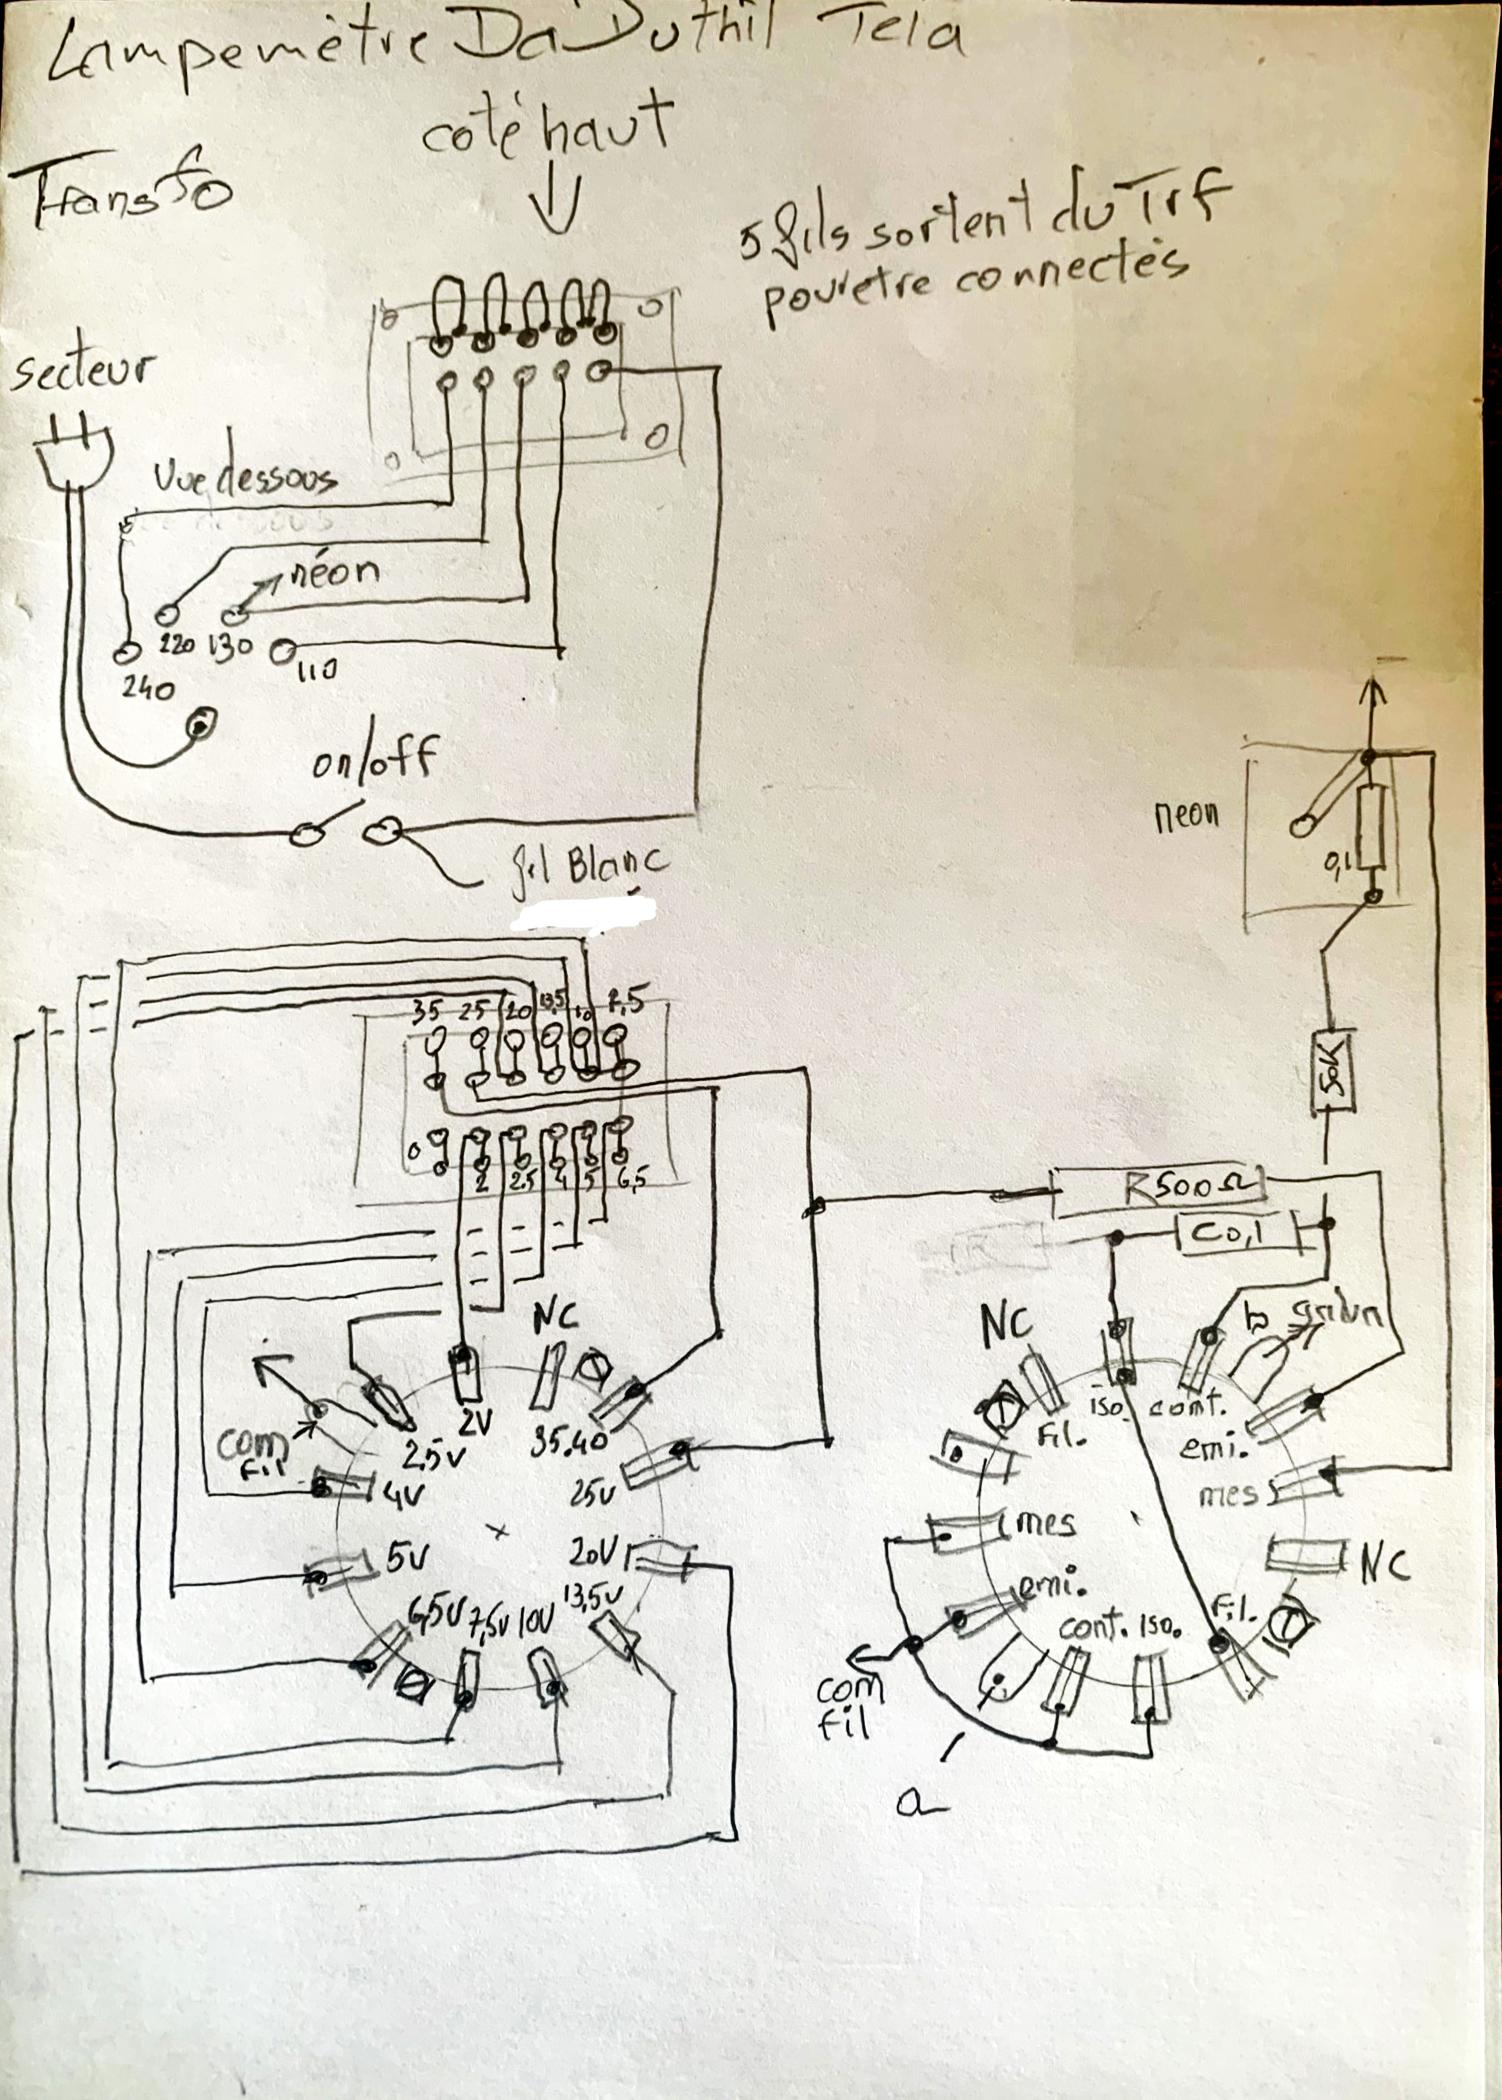 Lampemètre Da' Duthil Tela
coté haut
Transfo
5 fils sortent du Trf
pour etre connectés
secteur
Vue dessous
néon
220 130
240
110
on/off
fil Blanc
neon
0,1
35 25 20 13,5 10 7,5
50K
0
2 2,5 4 5 6,5
R500Ω
C0,1
NC
NC
b galva
com
fil
2,5V
2V
35.40
Fil.
iso.
cont.
emi.
4V
25V
mes
mes
5V
20V
NC
6,5V 7,5V 10V 13,5V
emi.
cont. Iso.
Fil.
com
fil
a